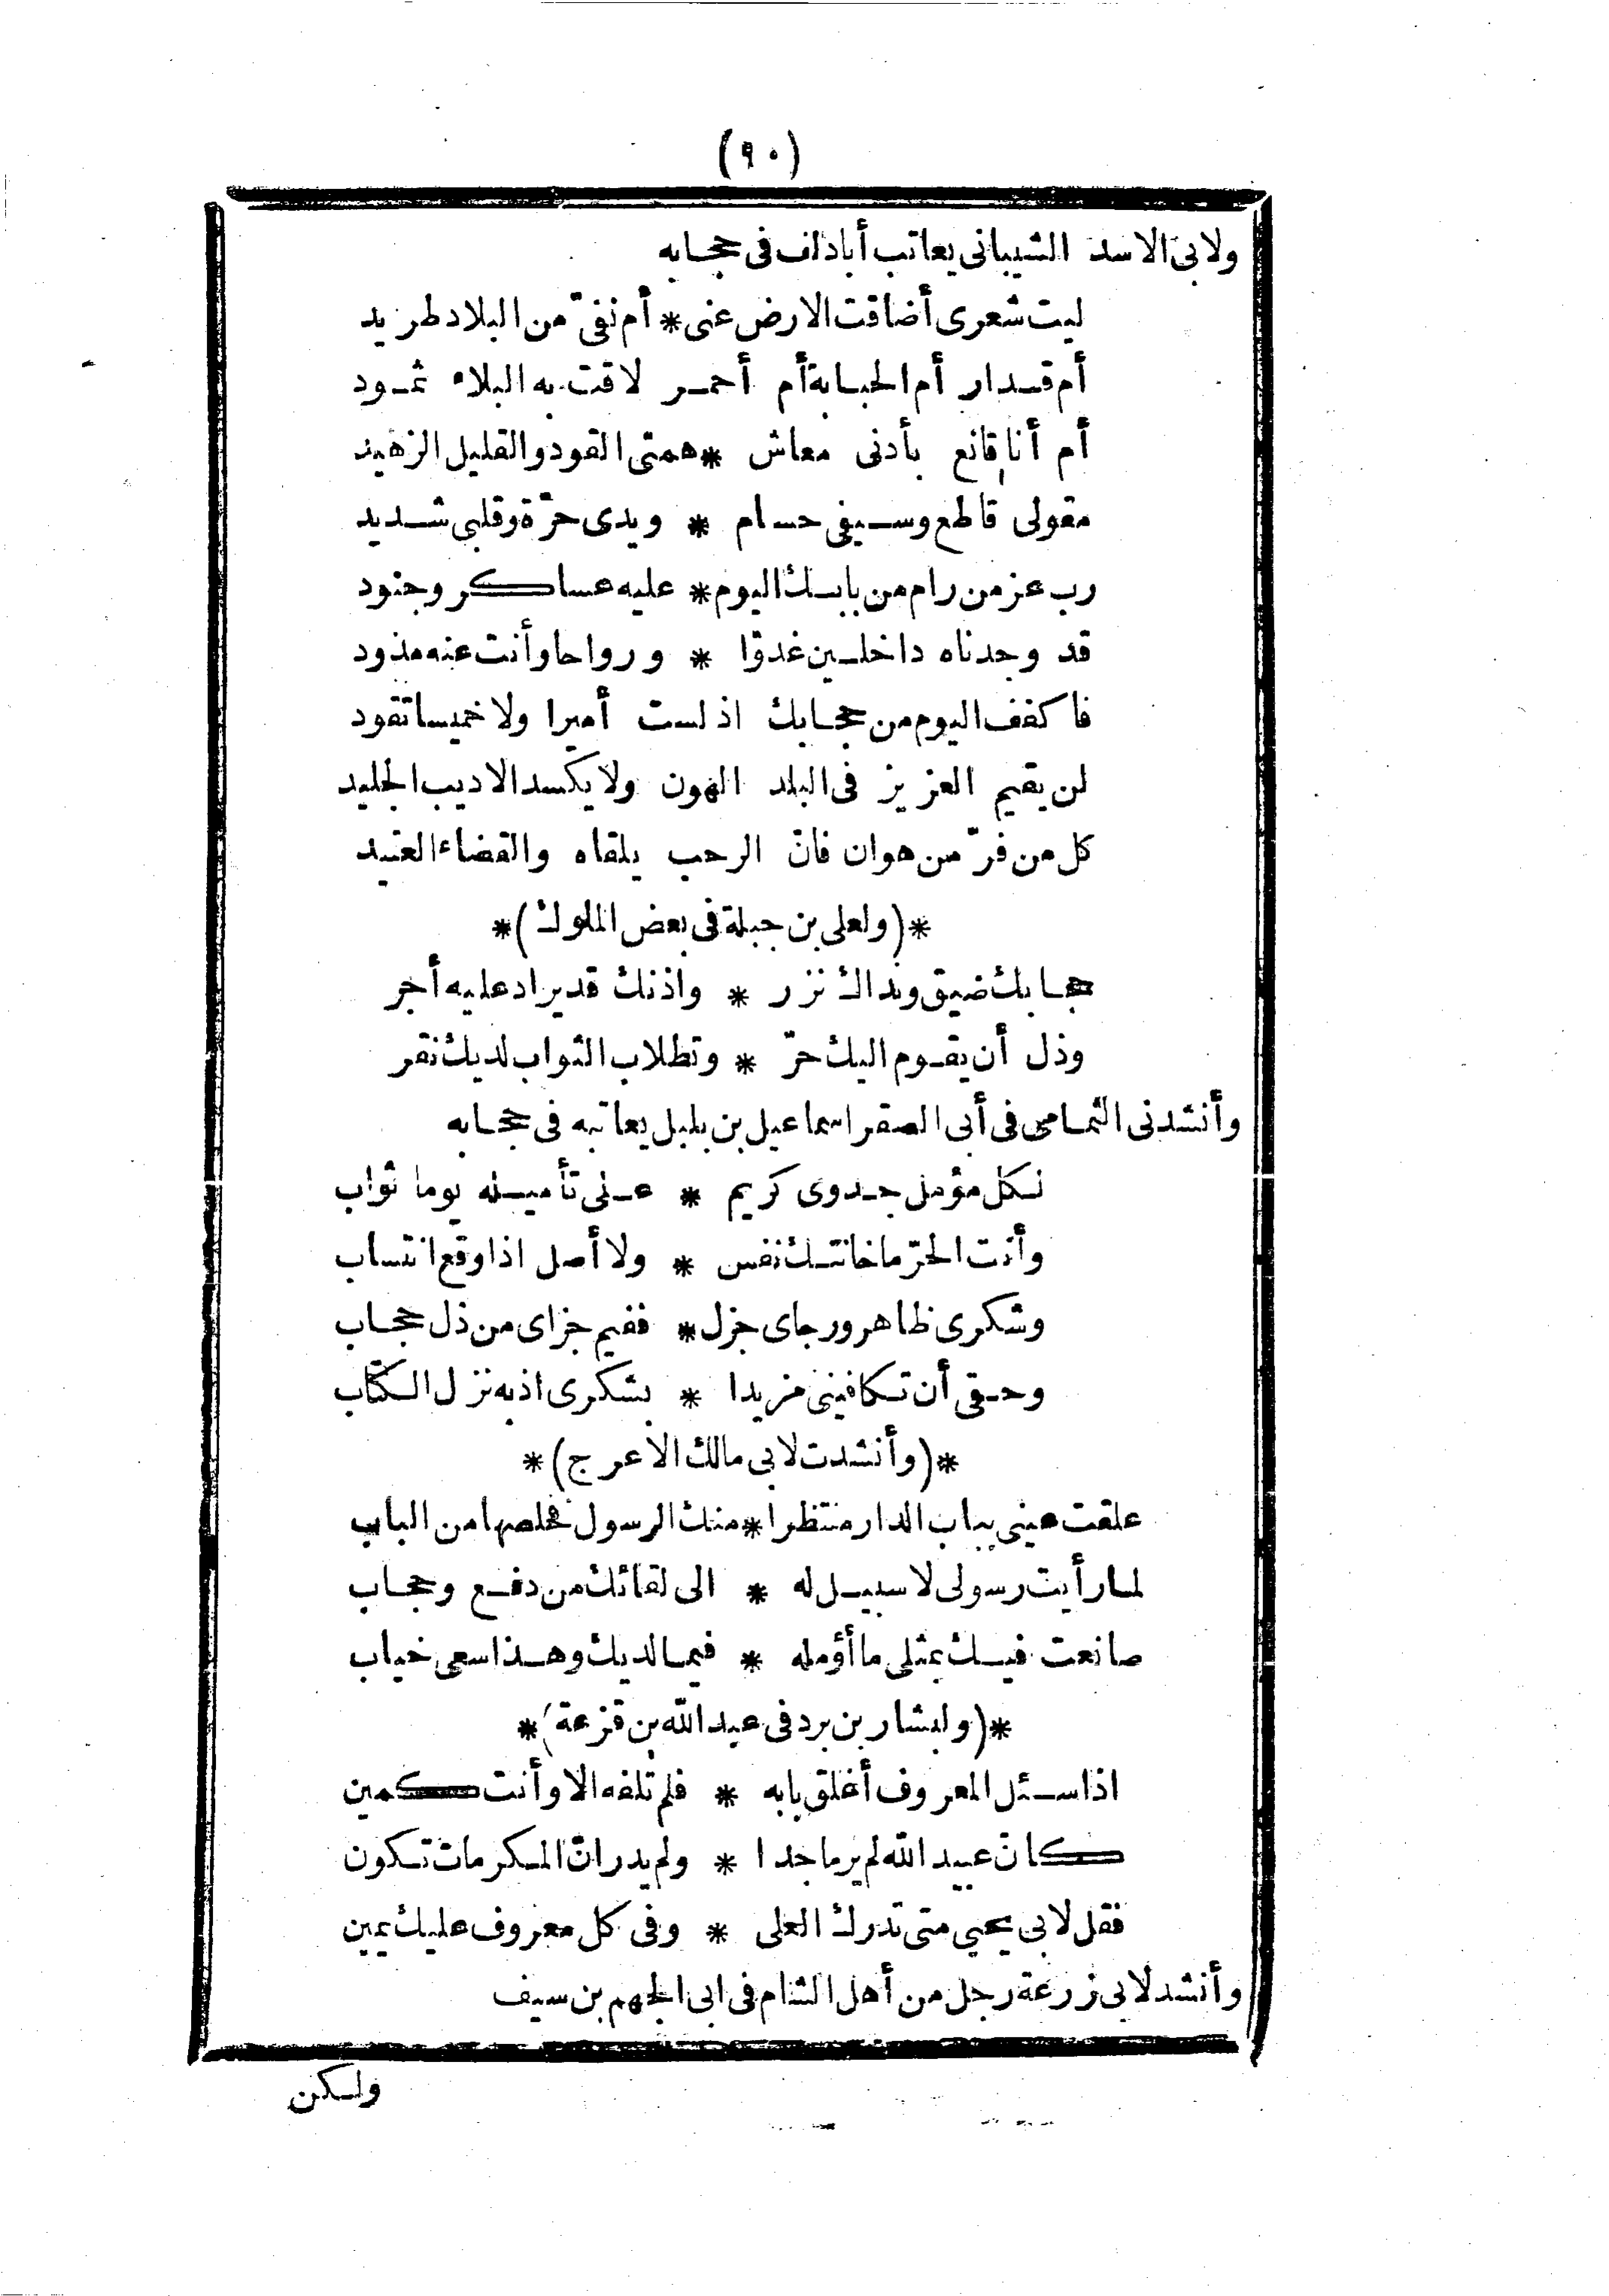 (٩٠)
ولابى الاسد الشيبانى يعاتب أبادلف فى حجابه
ليت شعرى أضاقت الارض عنى * أم نفىّ من البلاد طريد
أم قدار أم الحبابة أم أحمر لاقت به البلاء ثمود
أم أنا قانع بأدنى معاش * همتى القود والقليل الزهيد
مقولى قاطع وسيفى حسام * ويدى حرّة وقلبى شديد
رب عز من رام من بابك اليوم * عليه عساكر وجنود
قد وجدناه داخلين غدوّا * ورواحا وأنت عنه مذود
فاكفف اليوم من حجابك اذ لست أميرا ولا خميسا تقود
لن يقيم العزيز فى البلد الهون ولا يكسد الاديب الجليد
كل من فرّ من هوان فان الرحب يلقاه والقضاء العتيد
*(ولعلى بن جبلة فى بعض الملوك)*
حجابك ضيق ونداك نزر * واذنك قد يراد عليه أجر
وذل أن يقوم اليك حرّ * وتطلاب الثواب لديك نقر
وأنشدنى الثمامى فى أبى الصقر اسماعيل بن بلبل يعاتبه فى حجابه
لكل مؤمل جدوى كريم * على تأميله يوما ثواب
وأنت الحرّ ما خانتك نفس * ولا أصل اذا وقع انتساب
وشكرى ظاهر ورجاى جزل * ففيم جزاى من ذل حجاب
وحقى أن تكافينى مزيدا * بشكرى اذ به نزل الكتاب
*(وأنشدت لابى مالك الاعرج)*
علقت عينى بباب الدار منتظرا * منك الرسول فخلصها من الباب
لما رأيت رسولى لا سبيل له * الى لقائك من دفع وحجاب
صانعت فيك بمثلى ما أؤمله * فيما لديك وهذا سعى خياب
*(ولبشار بن برد فى عبيد الله بن قزعة)*
اذا سئل المعروف أغلق بابه * فلم تلفه الا وأنت كمين
كانّ عبيد الله لم ير ماجدا * ولم يدر انّ المكرمات تكون
فقل لابى يحيى متى تدرك العلى * وفى كل معروف عليك يمين
وأنشد لابى زرعة رجل من أهل الشام فى ابى الجهم بن سيف
ولكن